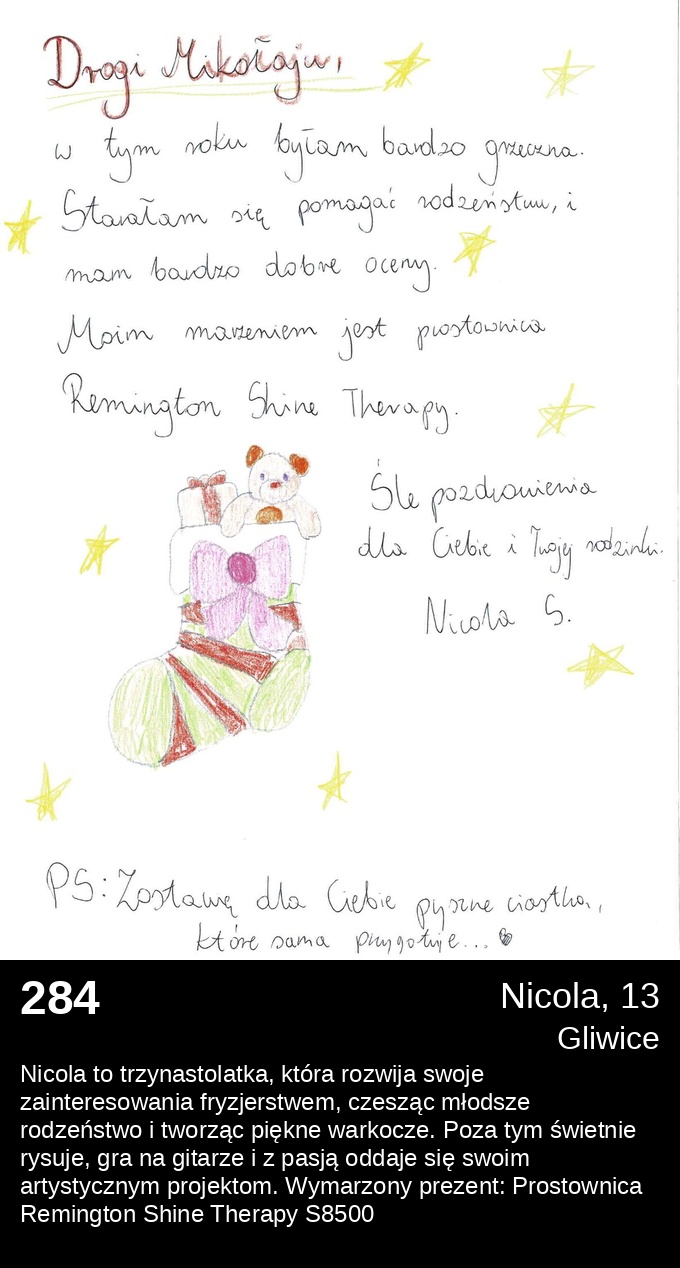 Drogi Mikołaju,
w tym roku byłam bardzo grzeczna.
Starałam się pomagać rodzeństwu, i
mam bardzo dobre oceny.
Moim marzeniem jest prostownica
Remington Shine Therapy.
Śle pozdrowienia
dla Ciebie i Twojej rodzinki.
Nicola S.
PS: Zostawię dla Ciebie pyszne ciastka,
które sama przygotuje... 
284
Nicola, 13
Gliwice
Nicola to trzynastolatka, która rozwija swoje
zainteresowania fryzjerstwem, czesząc młodsze
rodzeństwo i tworząc piękne warkocze. Poza tym świetnie
rysuje, gra na gitarze i z pasją oddaje się swoim
artystycznym projektom. Wymarzony prezent: Prostownica
Remington Shine Therapy S8500